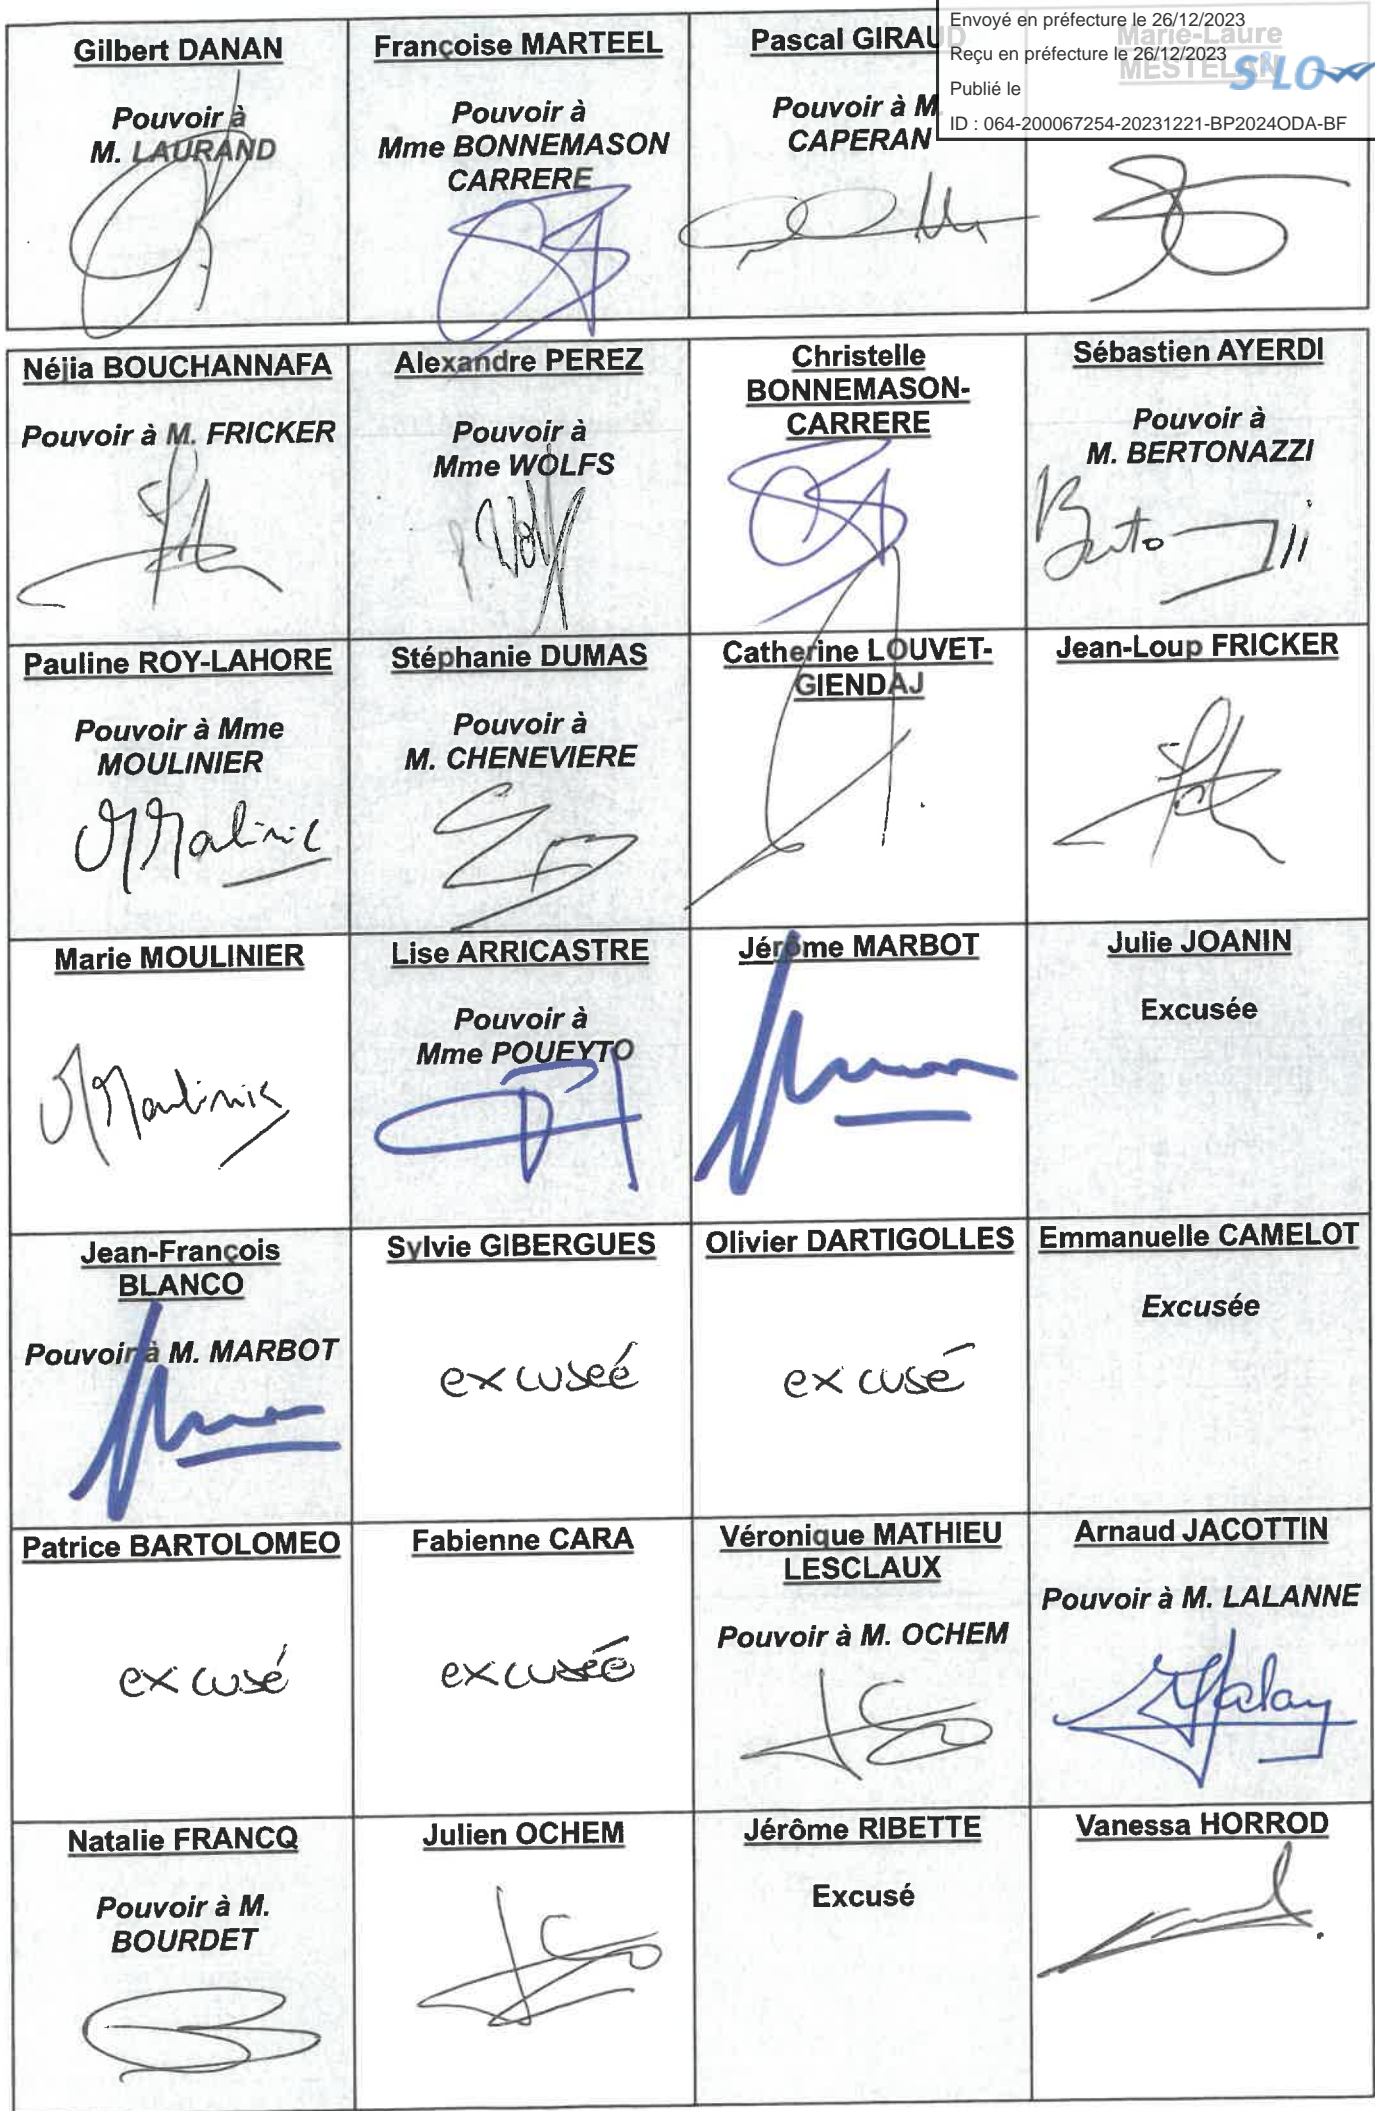 Envoyé en préfecture le 26/12/2023
Reçu en préfecture le 26/12/2023
Publié le
ID : 064-200067254-20231221-BP2024ODA-BF
S²LO
Gilbert DANAN
Pouvoir à
M. LAURAND
Françoise MARTEEL
Pouvoir à
Mme BONNEMASON
CARRERE
Pascal GIRAUD
Pouvoir à M.
CAPERAN
Marie-Laure
MESTELAN
Néjia BOUCHANNAFA
Pouvoir à M. FRICKER
Alexandre PEREZ
Pouvoir à
Mme WOLFS
Christelle
BONNEMASON-
CARRERE
Sébastien AYERDI
Pouvoir à
M. BERTONAZZI
Pauline ROY-LAHORE
Pouvoir à Mme
MOULINIER
Stéphanie DUMAS
Pouvoir à
M. CHENEVIERE
Catherine LOUVET-
GIENDAJ
Jean-Loup FRICKER
Marie MOULINIER
Lise ARRICASTRE
Pouvoir à
Mme POUEYTO
Jérôme MARBOT
Julie JOANIN
Excusée
Jean-François
BLANCO
Pouvoir à M. MARBOT
Sylvie GIBERGUES
excuseé
Olivier DARTIGOLLES
excusé
Emmanuelle CAMELOT
Excusée
Patrice BARTOLOMEO
excusé
Fabienne CARA
excusée
Véronique MATHIEU
LESCLAUX
Pouvoir à M. OCHEM
Arnaud JACOTTIN
Pouvoir à M. LALANNE
Natalie FRANCQ
Pouvoir à M.
BOURDET
Julien OCHEM
Jérôme RIBETTE
Excusé
Vanessa HORROD